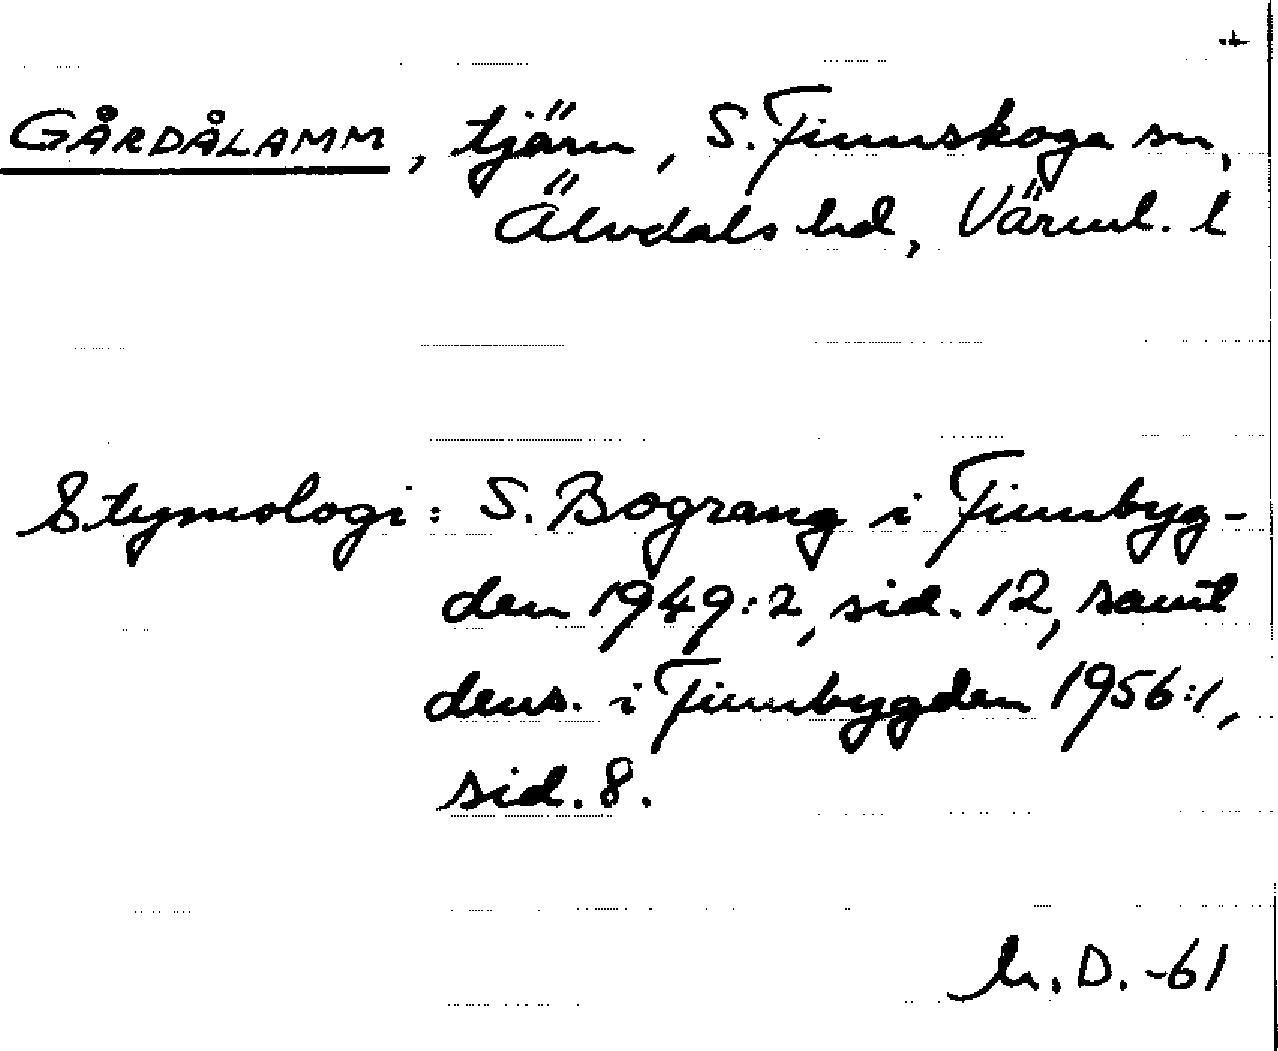 +
GÅRDÅLAMM, tjärn, S. Finnskoga sn,
Älvdals hd, Värml. l
Etymologi: S. Bograng i Finnbyg-
den 1949:2, sid. 12, samt
dens. i Finnbygden 1956:1,
sid. 8.
h. D. -61